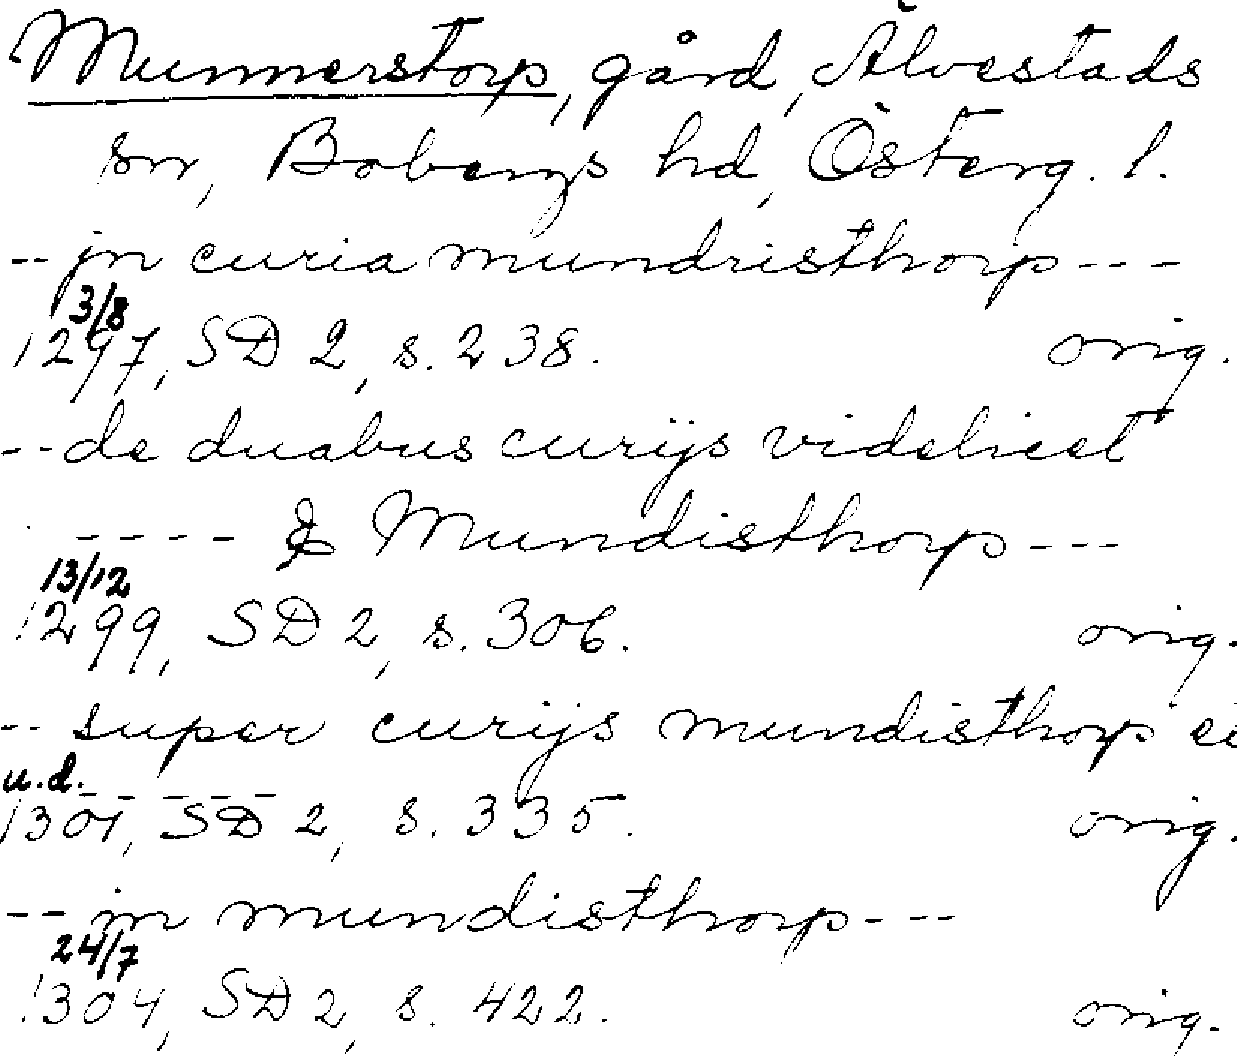 Munnerstorp, gård, Älvestads
sn, Bobergs hd, Österg. l.
-- jn curia mundristhorp ---
3/8
1297, SD 2, s. 238. orig.
-- de duabus curijs videlicet
---- & Mundisthorp ---
13/12
1299, SD 2, s. 306. orig.
-- super curijs mundisthorp
u.d. -----
1301, SD 2, s. 335. orig.
-- in mundisthorp ---
24/7
1304, SD 2, s. 422. orig.